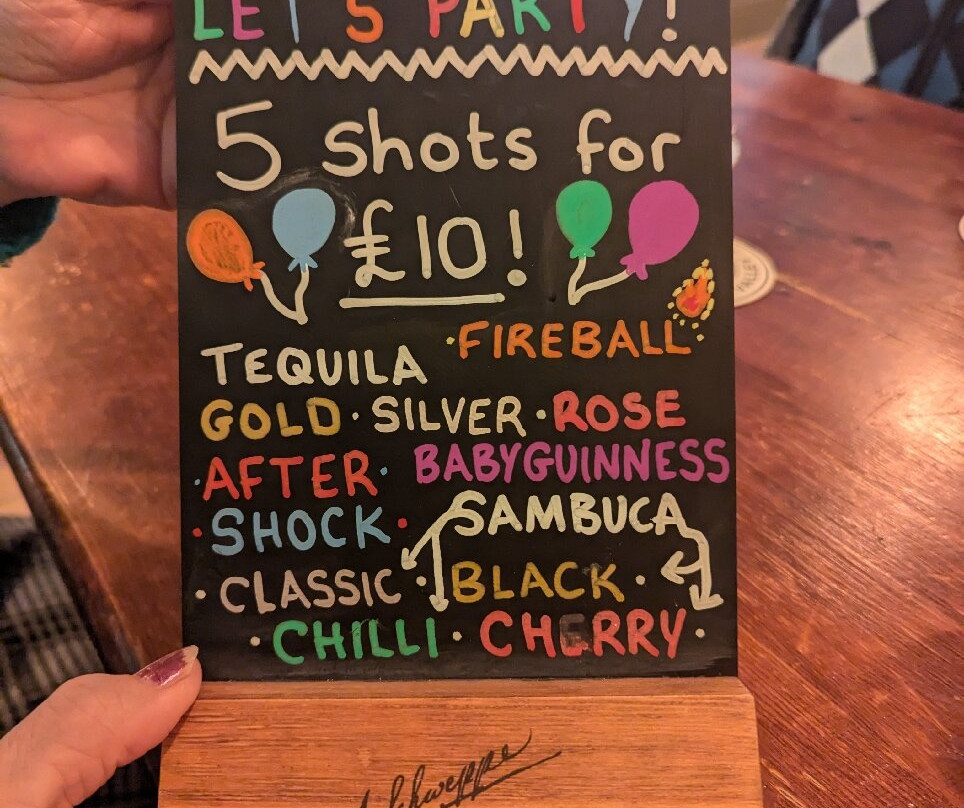 LET'S PARTY!
5 shots for
£10!
FIREBALL
TEQUILA
GOLD · SILVER · ROSE
AFTER · BABYGUINNESS
SHOCK · SAMBUCA
CLASSIC · BLACK ·
CHILLI · CHERRY ·
Schweppe